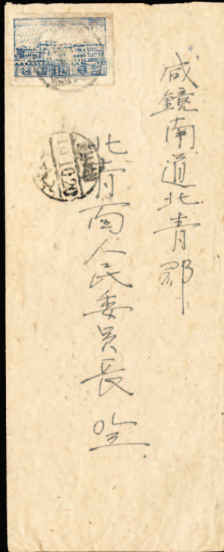 咸鏡南道北青郡
北青面人民委員長 앞